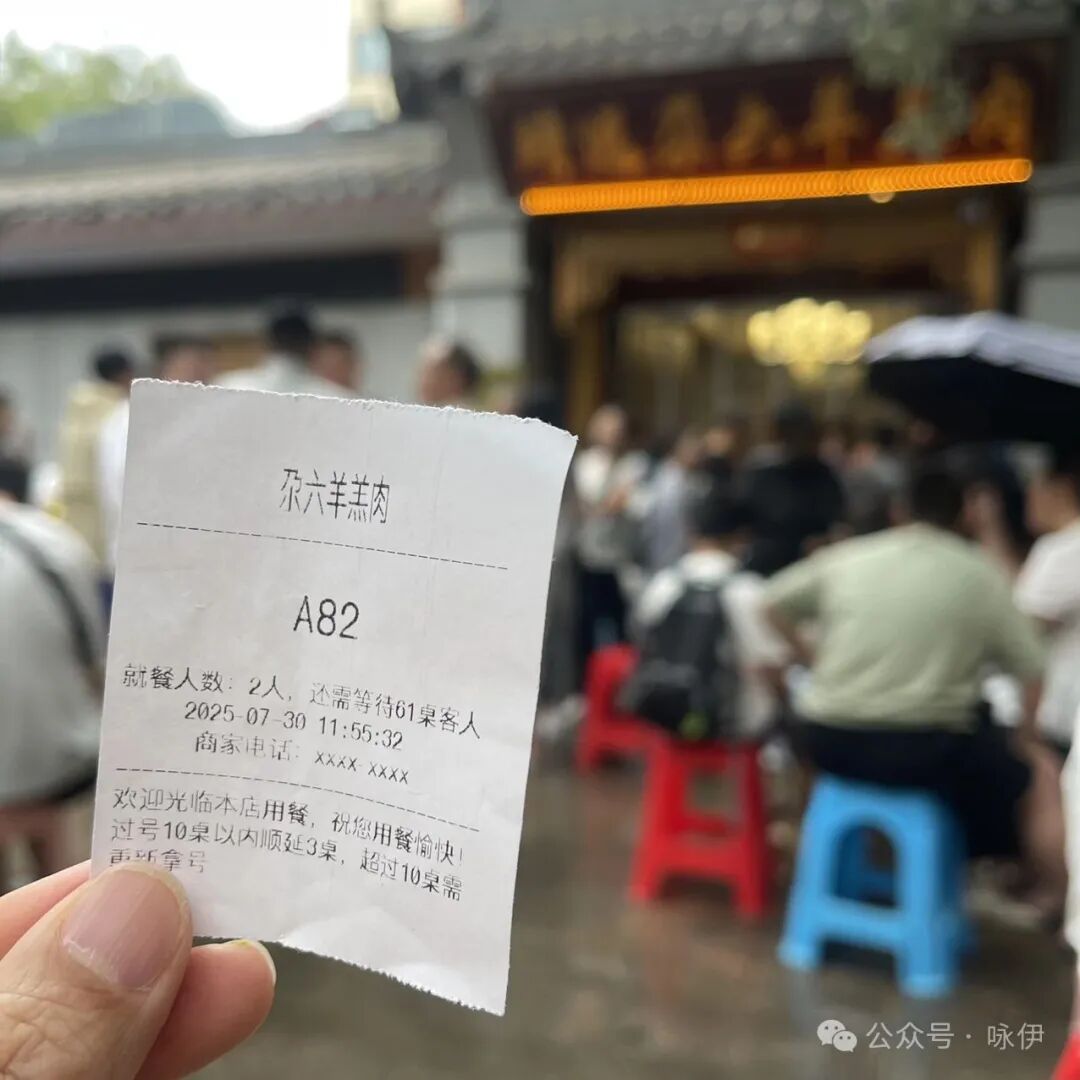 尕六羊羔肉
A82
就餐人数：2人，还需等待61桌客人
2025-07-30 11:55:32
商家电话：xxxx-xxxx
欢迎光临本店用餐，祝您用餐愉快！
过号10桌以内顺延3桌，超过10桌需
重新拿号
公众号·咏伊